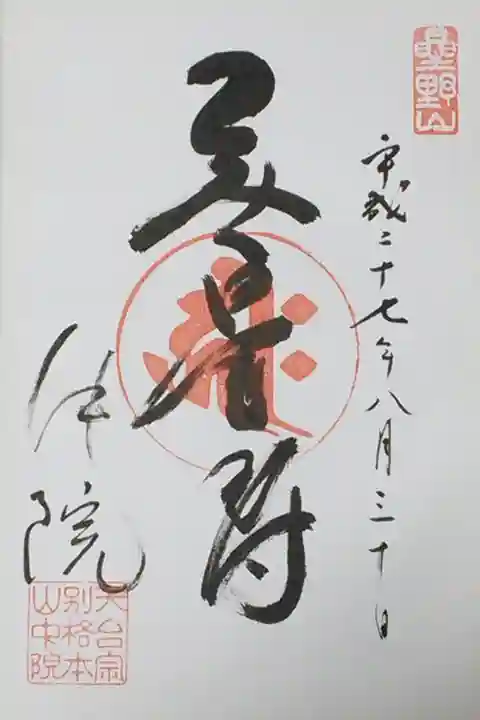 曐野山
平成二十七年八月三十日
無量寿
仲院
天台宗
別格本
山中院